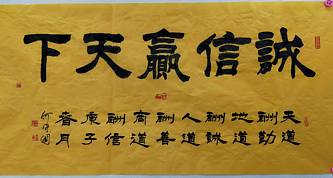 誠信贏天下
天道
酬勤
地道
酬誠
人道
酬善
商道
酬信
庚子
春月